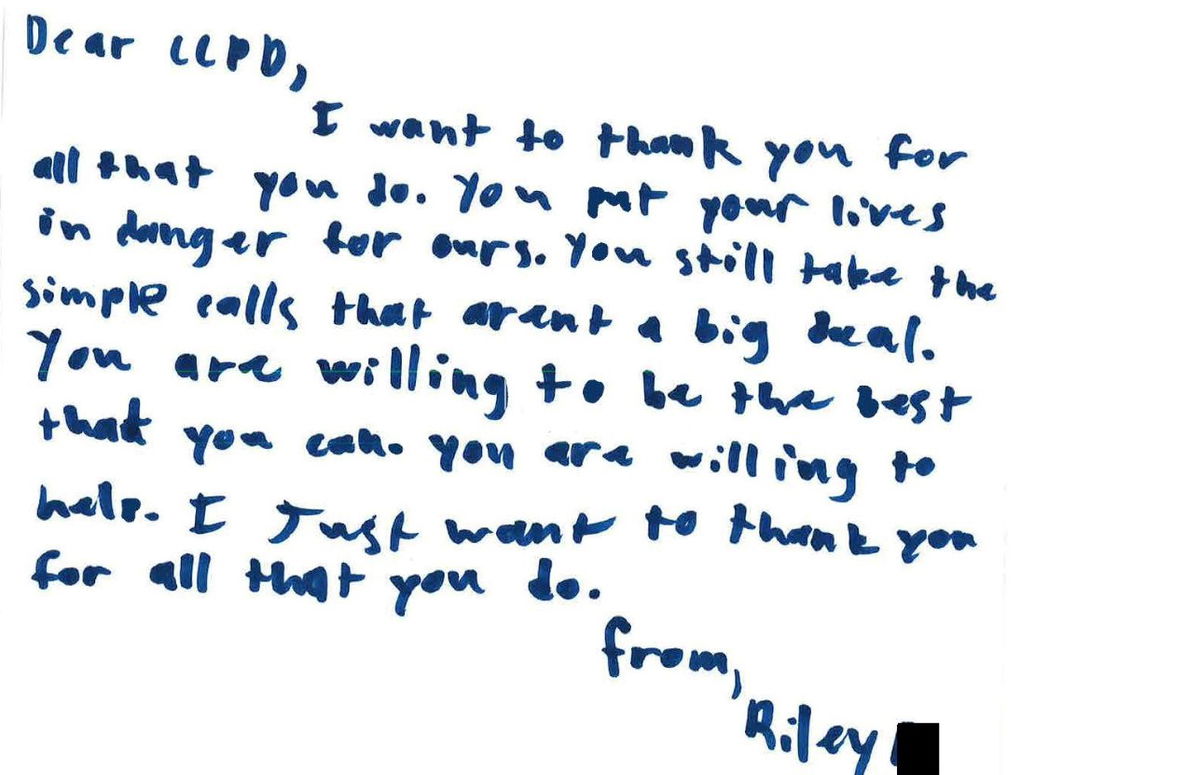 Dear LLPD,
I want to thank you for
all that you do. You put your lives
in danger for ours. You still take the
simple calls that arent a big deal.
You are willing to be the best
that you can. you are willing to
help. I Just want to thank you
for all that you do.
from,
Riley